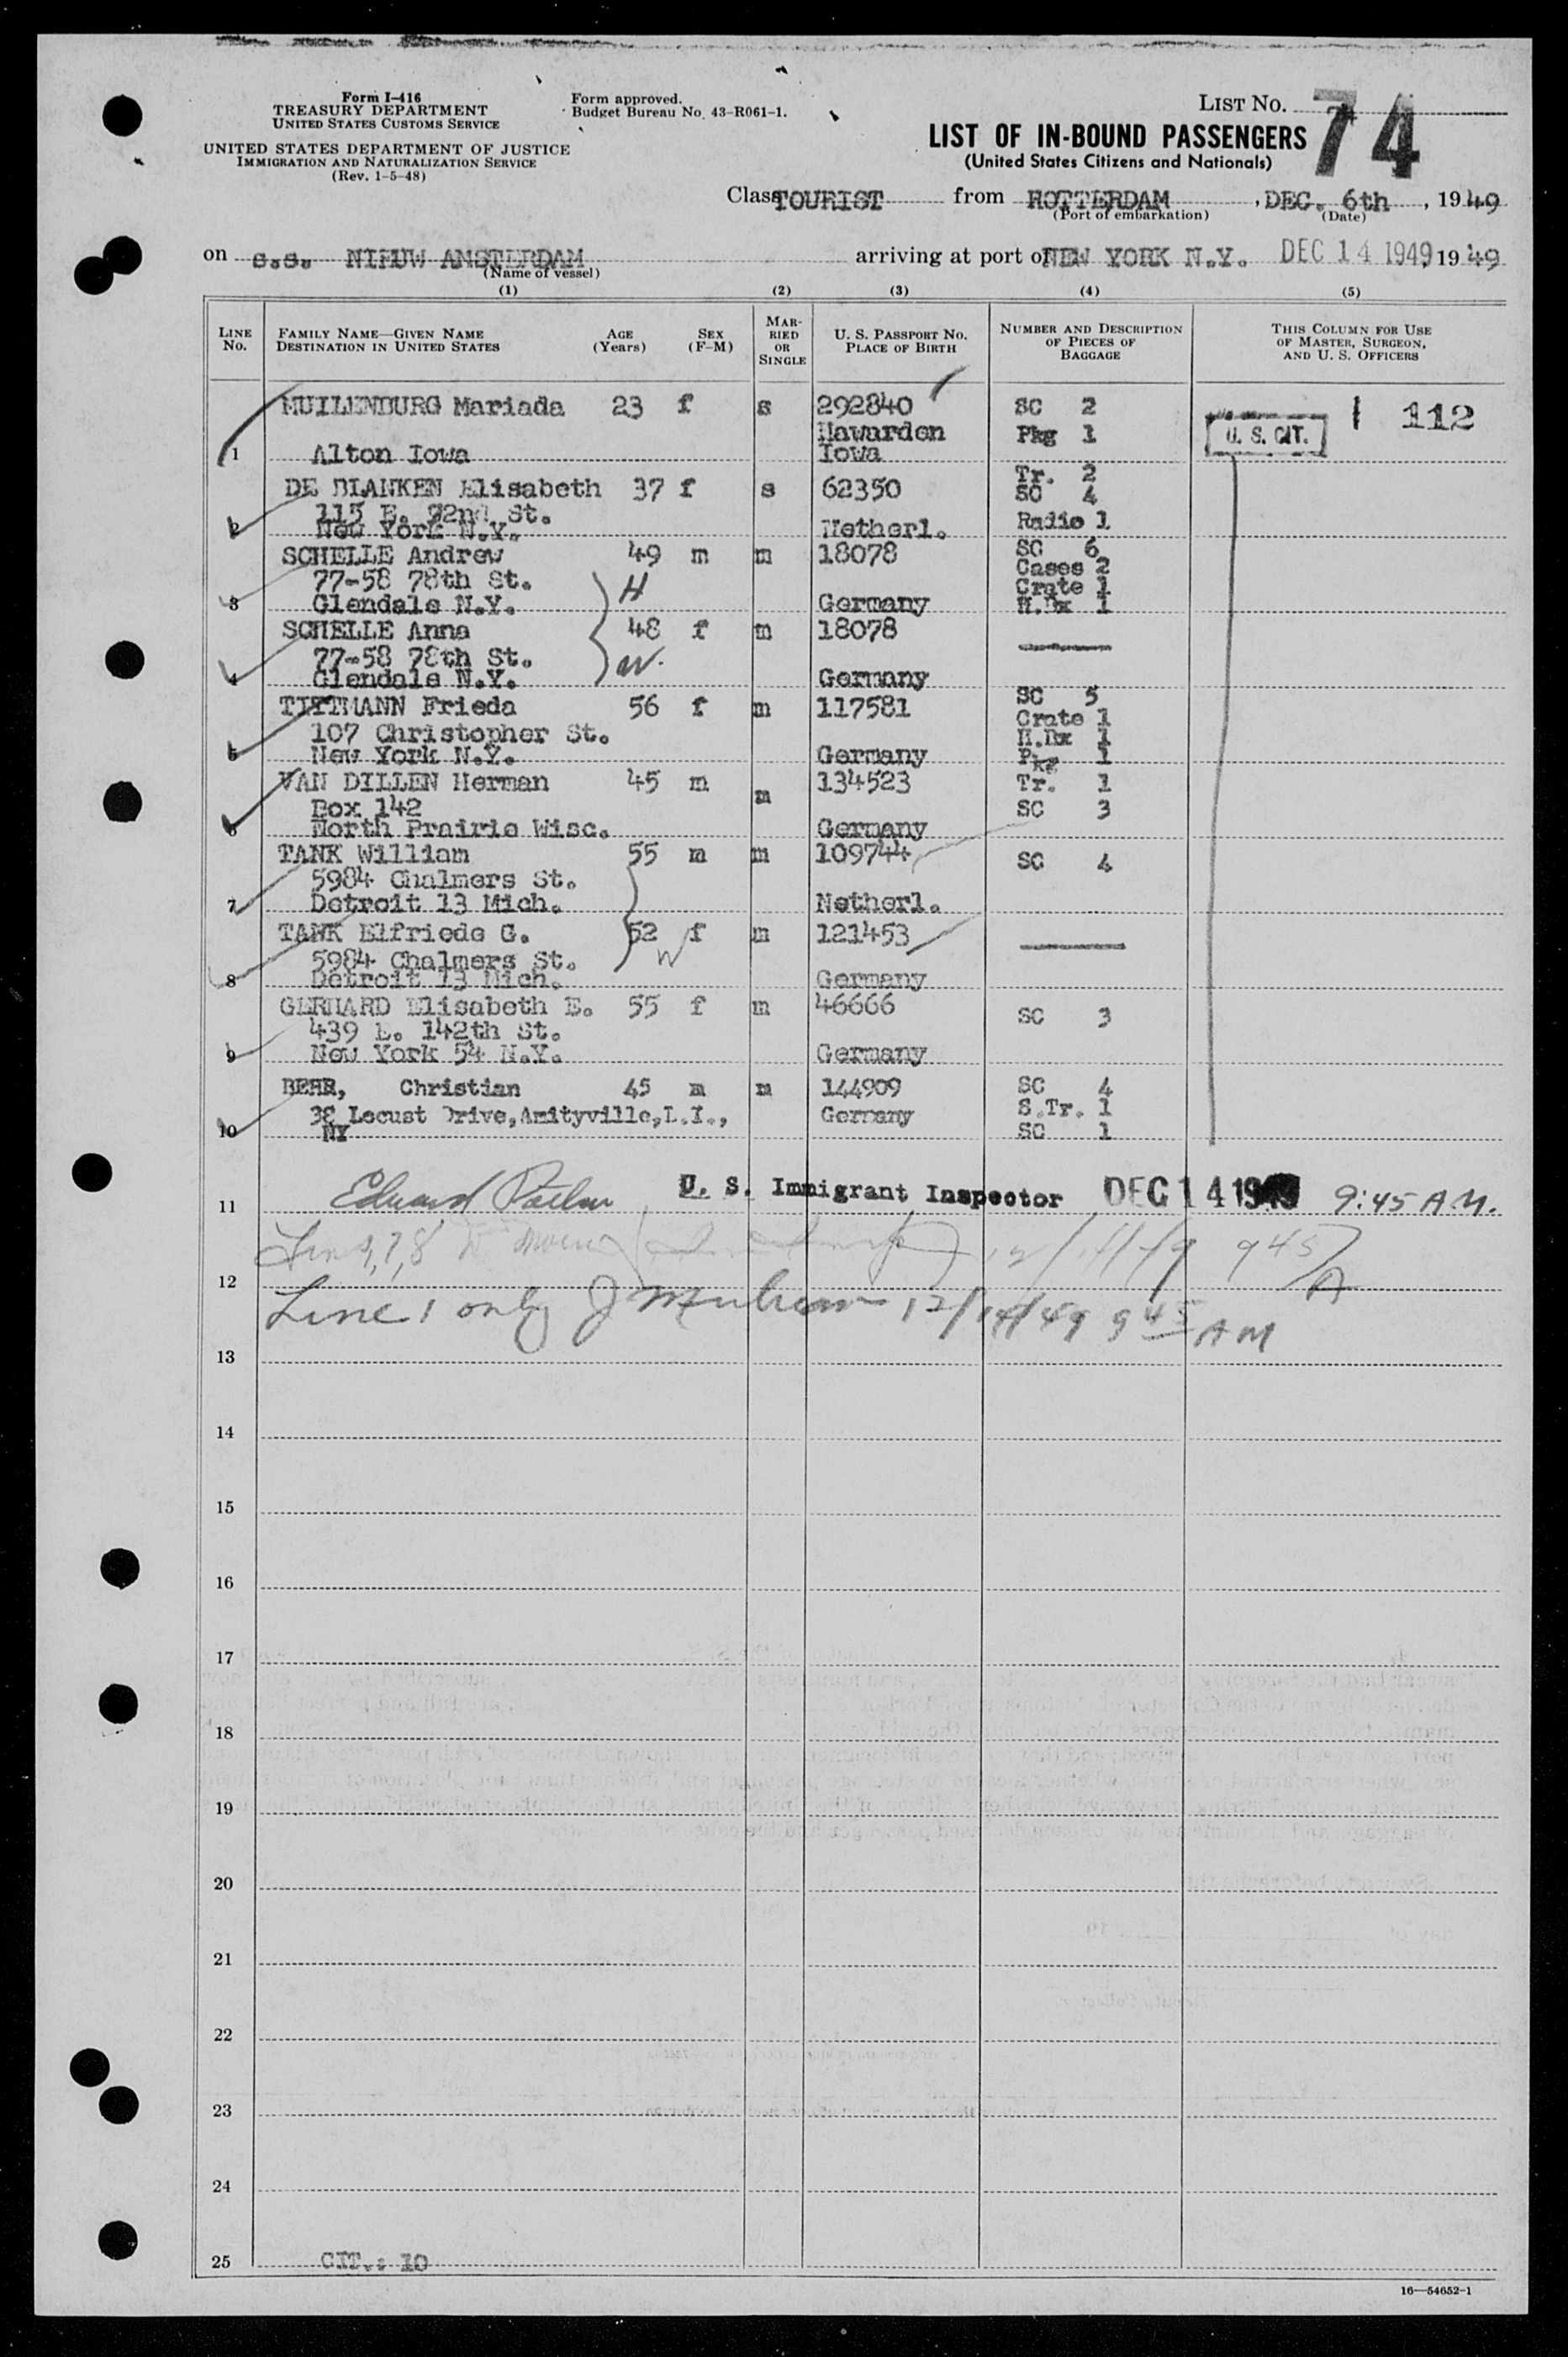 Form I-416
TREASURY DEPARTMENT
UNITED STATES CUSTOMS SERVICE
UNITED STATES DEPARTMENT OF JUSTICE
IMMIGRATION AND NATURALIZATION SERVICE
(Rev. 1-5-48)
Form approved.
Budget Bureau No. 43-R061-1.
LIST NO. 74
LIST OF IN-BOUND PASSENGERS
(United States Citizens and Nationals)
Class TOURIST from ROTTERDAM, DEC. 6th, 1949
(Port of embarkation) (Date)
on s.s. NIEUW AMSTERDAM arriving at port of NEW YORK N.Y. DEC 14 1949 1949
(Name of vessel)
(1) (2) (3) (4) (5)
LINE NO.
FAMILY NAME—GIVEN NAME
DESTINATION IN UNITED STATES
AGE (Years)
SEX (F-M)
MARRIED OR SINGLE
U. S. PASSPORT NO.
PLACE OF BIRTH
NUMBER AND DESCRIPTION OF PIECES OF BAGGAGE
THIS COLUMN FOR USE OF MASTER, SURGEON, AND U. S. OFFICERS
MUILENBURG Mariada 23 f s 292840 SC 2 112
Hawarden Pkg 1 U. S. CIT.
1 Alton Iowa Iowa
DE BLANKEN Elisabeth 37 f s 62350 Tr. 2
SC 4
115 E. 92nd St. Radio 1
2 New York N.Y. Netherl.
SCHELLE Andrew 49 m m 18078 SC 6
Cases 2
77-58 78th St. H Crate 1
3 Glendale N.Y. Germany H.Bx 1
SCHELLE Anna 48 f m 18078
77-58 78th St. W.
4 Glendale N.Y. Germany
TITTMANN Frieda 56 f m 117581 SC 5
Crate 1
107 Christopher St. H.Bx 1
5 New York N.Y. Germany Pkg 1
VAN DILLEN Herman 45 m m 134523 Tr. 1
Box 142 SC 3
6 North Prairie Wisc. Germany
TANK William 55 m m 109744 SC 4
5984 Chalmers St.
7 Detroit 13 Mich. Netherl.
TANK Elfriede G. 52 f m 121453
5984 Chalmers St. W
8 Detroit 13 Mich. Germany
GERHARD Elisabeth E. 55 f m 46666 SC 3
439 E. 142th St.
9 New York 54 N.Y. Germany
BEHR, Christian 45 m m 144909 SC 4
38 Locust Drive, Amityville, L.I., Germany S.Tr. 1
10 NY SC 1
11 Edward U. S. Immigrant Inspector DEC 14 1949 9:45 A M.
7, 8 12/14/49 9 45 A
12
Line 1 only J 12/14/49 9 45 A M
13
14
15
16
17
18
19
20
21
22
23
24
25 CIT.: 10
16—54652-1